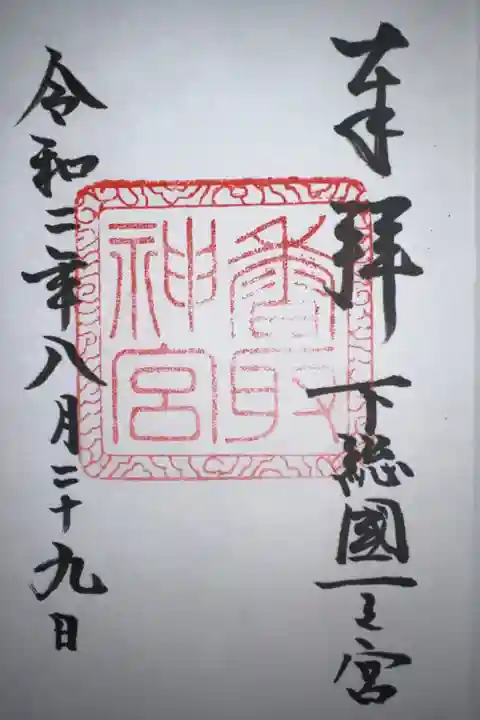 奉拝 下総國一之宮
香取
神宮
令和二年八月二十九日